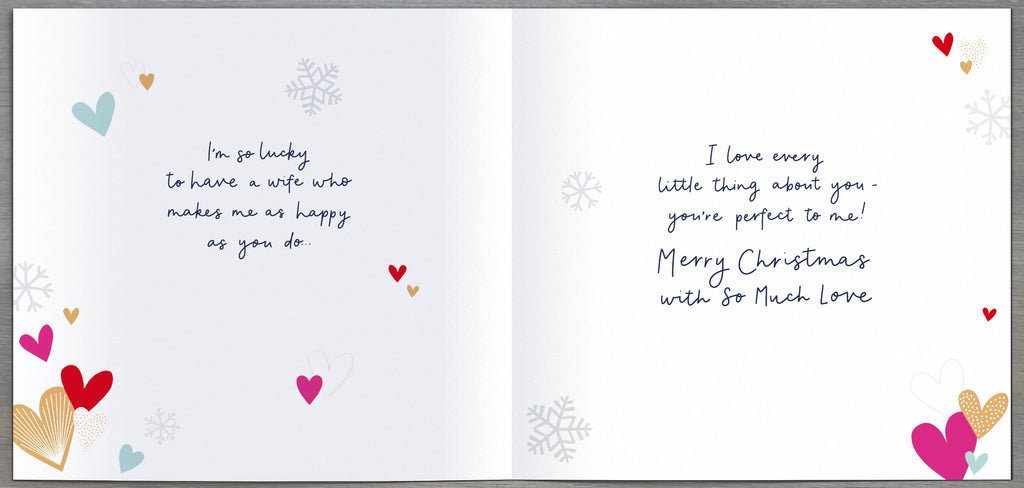 I'm so lucky
to have a wife who
makes me as happy
as you do..
I love every
little thing about you -
you're perfect to me!
Merry Christmas
with So Much Love